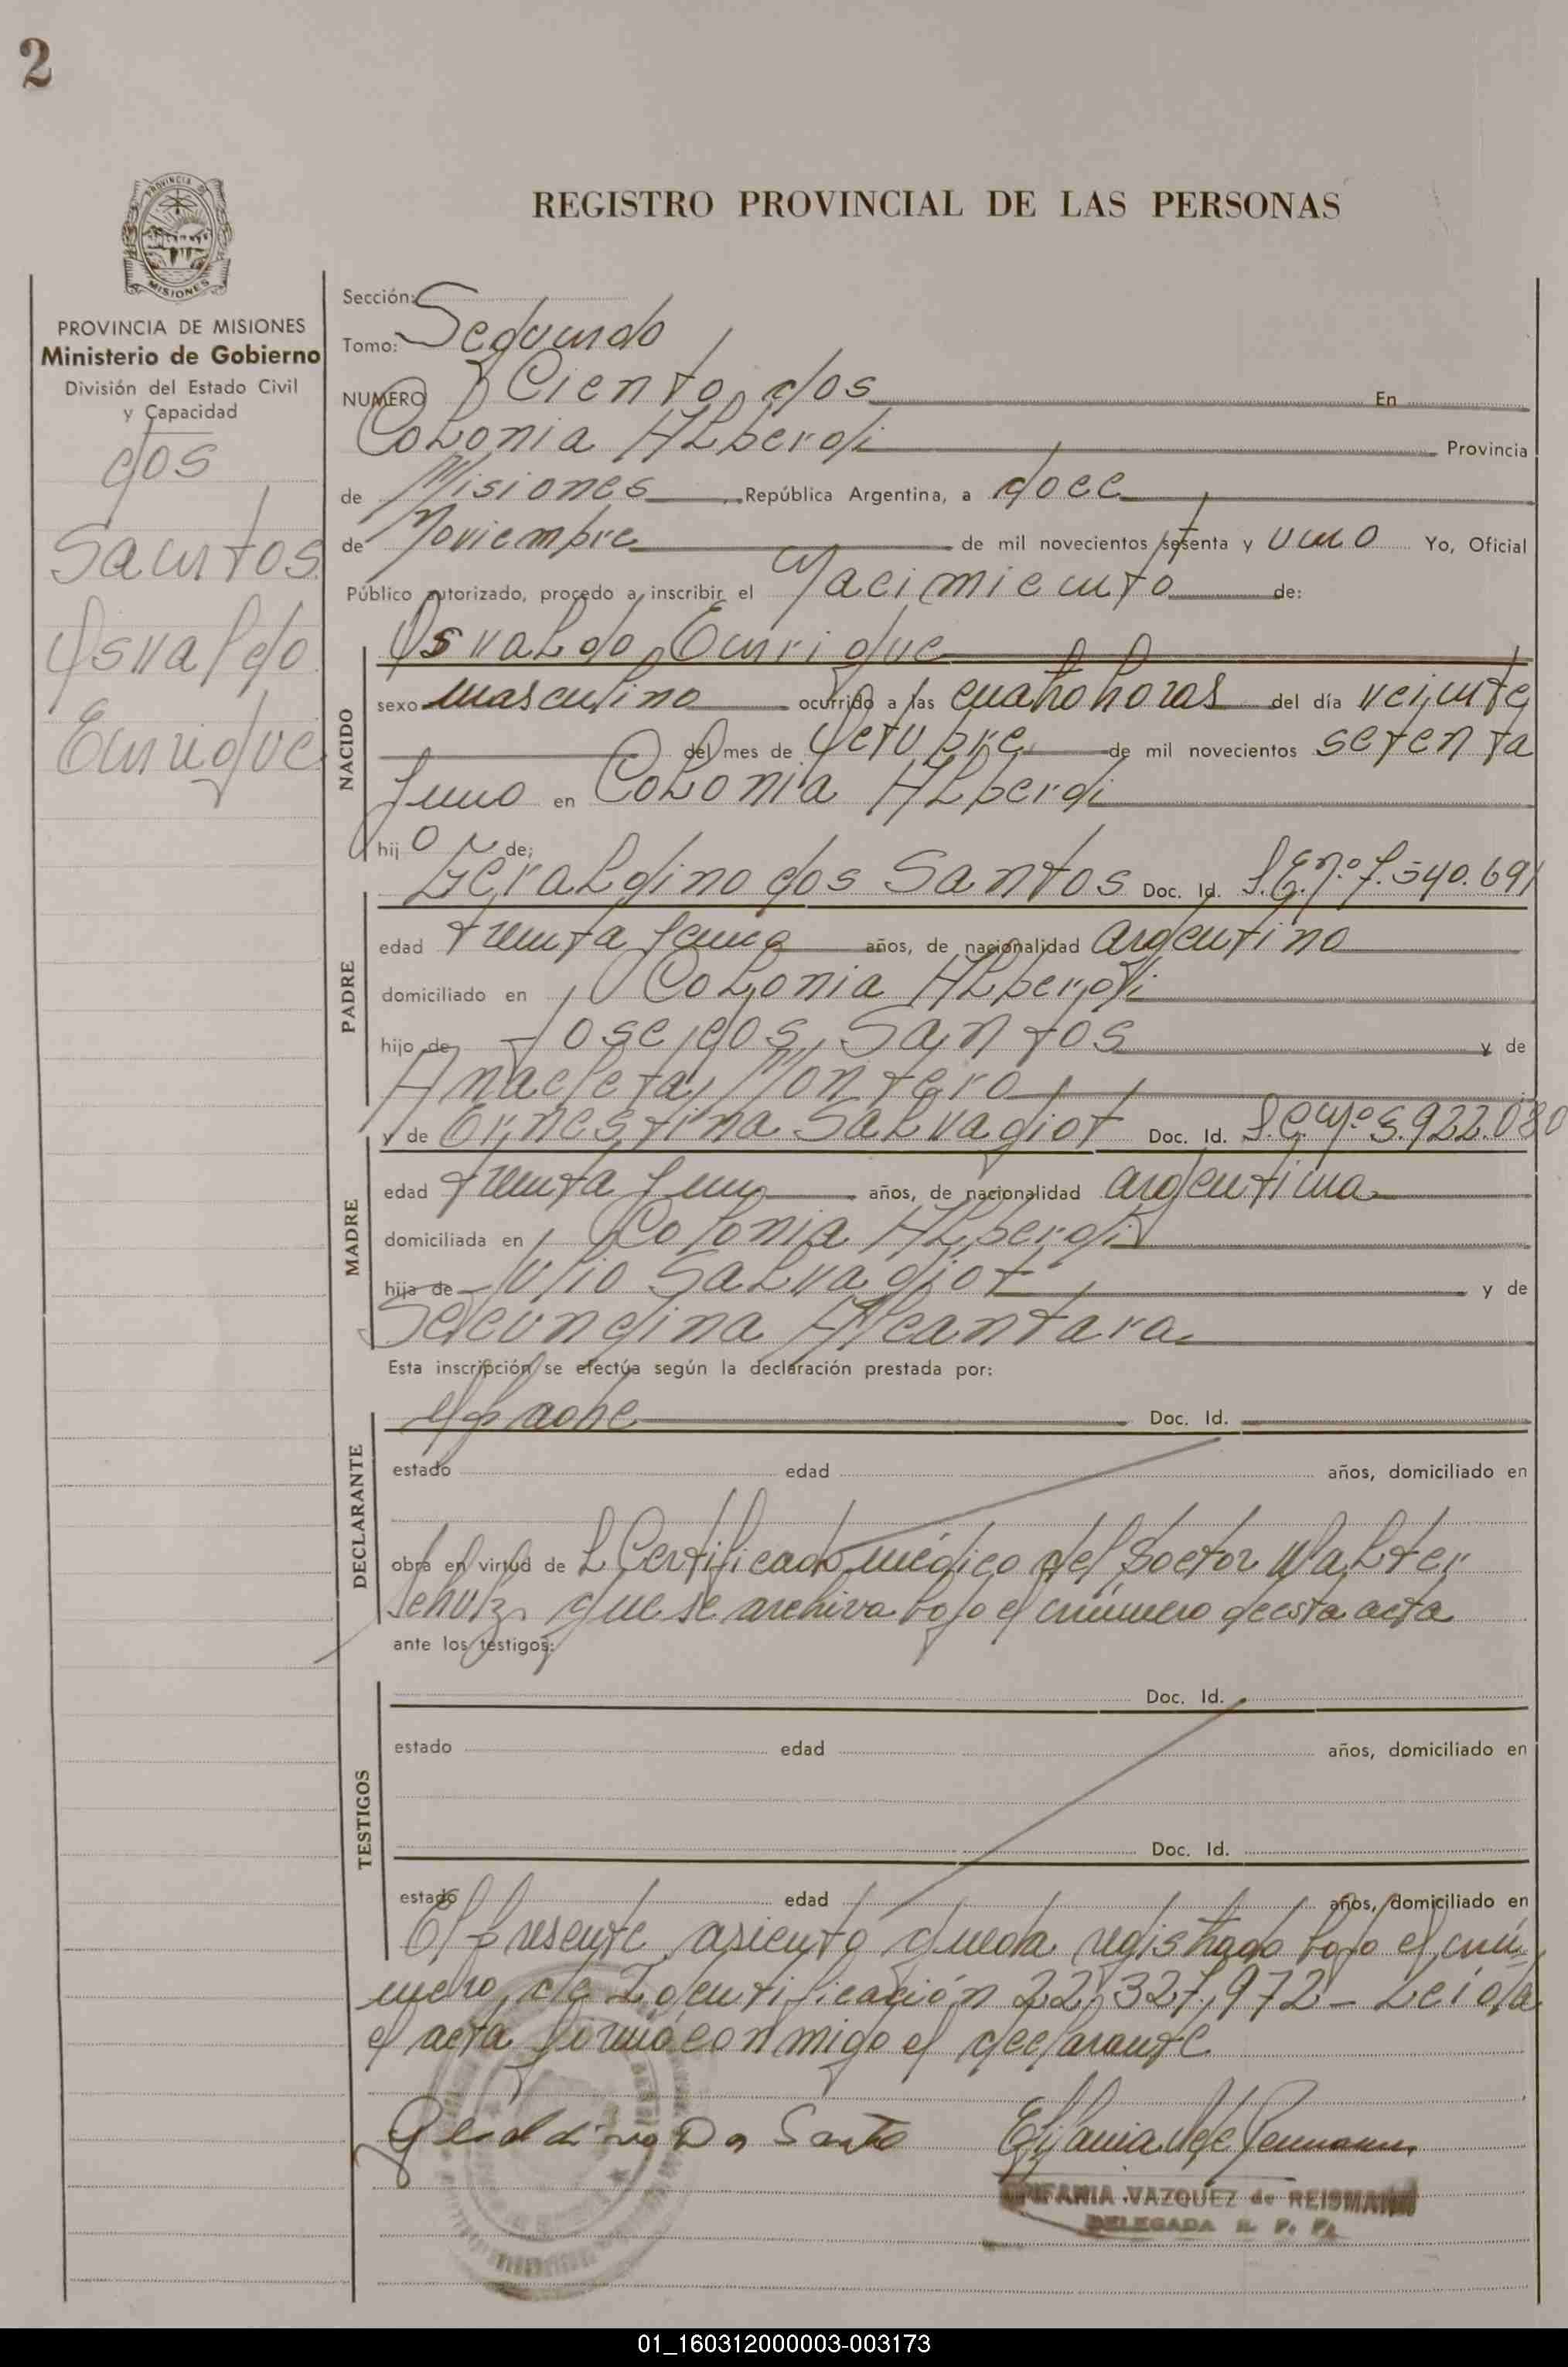 2
PROVINCIA DE
MISIONES
REGISTRO PROVINCIAL DE LAS PERSONAS
PROVINCIA DE MISIONES
Ministerio de Gobierno
División del Estado Civil
y Capacidad
dos
Santos
Osvaldo
Enrique
Sección:
Tomo: Segundo
NUMERO Ciento dos En
Colonia Alberdi Provincia
de Misiones República Argentina, a doce
de Noviembre de mil novecientos setenta y uno Yo, Oficial
Público autorizado, procedo a inscribir el Nacimiento de:
NACIDO
Osvaldo Enrique
sexo masculino ocurrido a las cuatro horas del día veinte
del mes de Octubre de mil novecientos setenta
y uno en Colonia Alberdi
hij o de:
PADRE
Geraldino dos Santos Doc. Id. L.E.Nº 7.540.691
edad treinta y años, de nacionalidad argentino
domiciliado en Colonia Alberdi
hijo de Jose dos Santos y de
Anacleta Montero
MADRE
y de Ernestina Salvagiot Doc. Id. L.C.Nº 5.922.080
edad treinta y un años, de nacionalidad argentina
domiciliada en Colonia Alberdi
hija de Julio Salvagiot y de
Secundina Alcantara
Esta inscripción se efectúa según la declaración prestada por:
DECLARANTE
el padre Doc. Id.
estado edad años, domiciliado en
obra en virtud de l Certificado médico del Doctor Walter
Schulz que se archiva bajo el número de esta acta
ante los testigos:
TESTIGOS
Doc. Id.
estado edad años, domiciliado en
Doc. Id.
estado edad años, domiciliado en
El presente asiento queda registrado bajo el nú-
mero de Identificación 22,327,972 - Leida
el acta firmó conmigo el declarante
Geraldino Dos Santo
EPIFANIA VAZQUEZ de REISMANN
DELEGADA R. P. P.
01_160312000003-003173